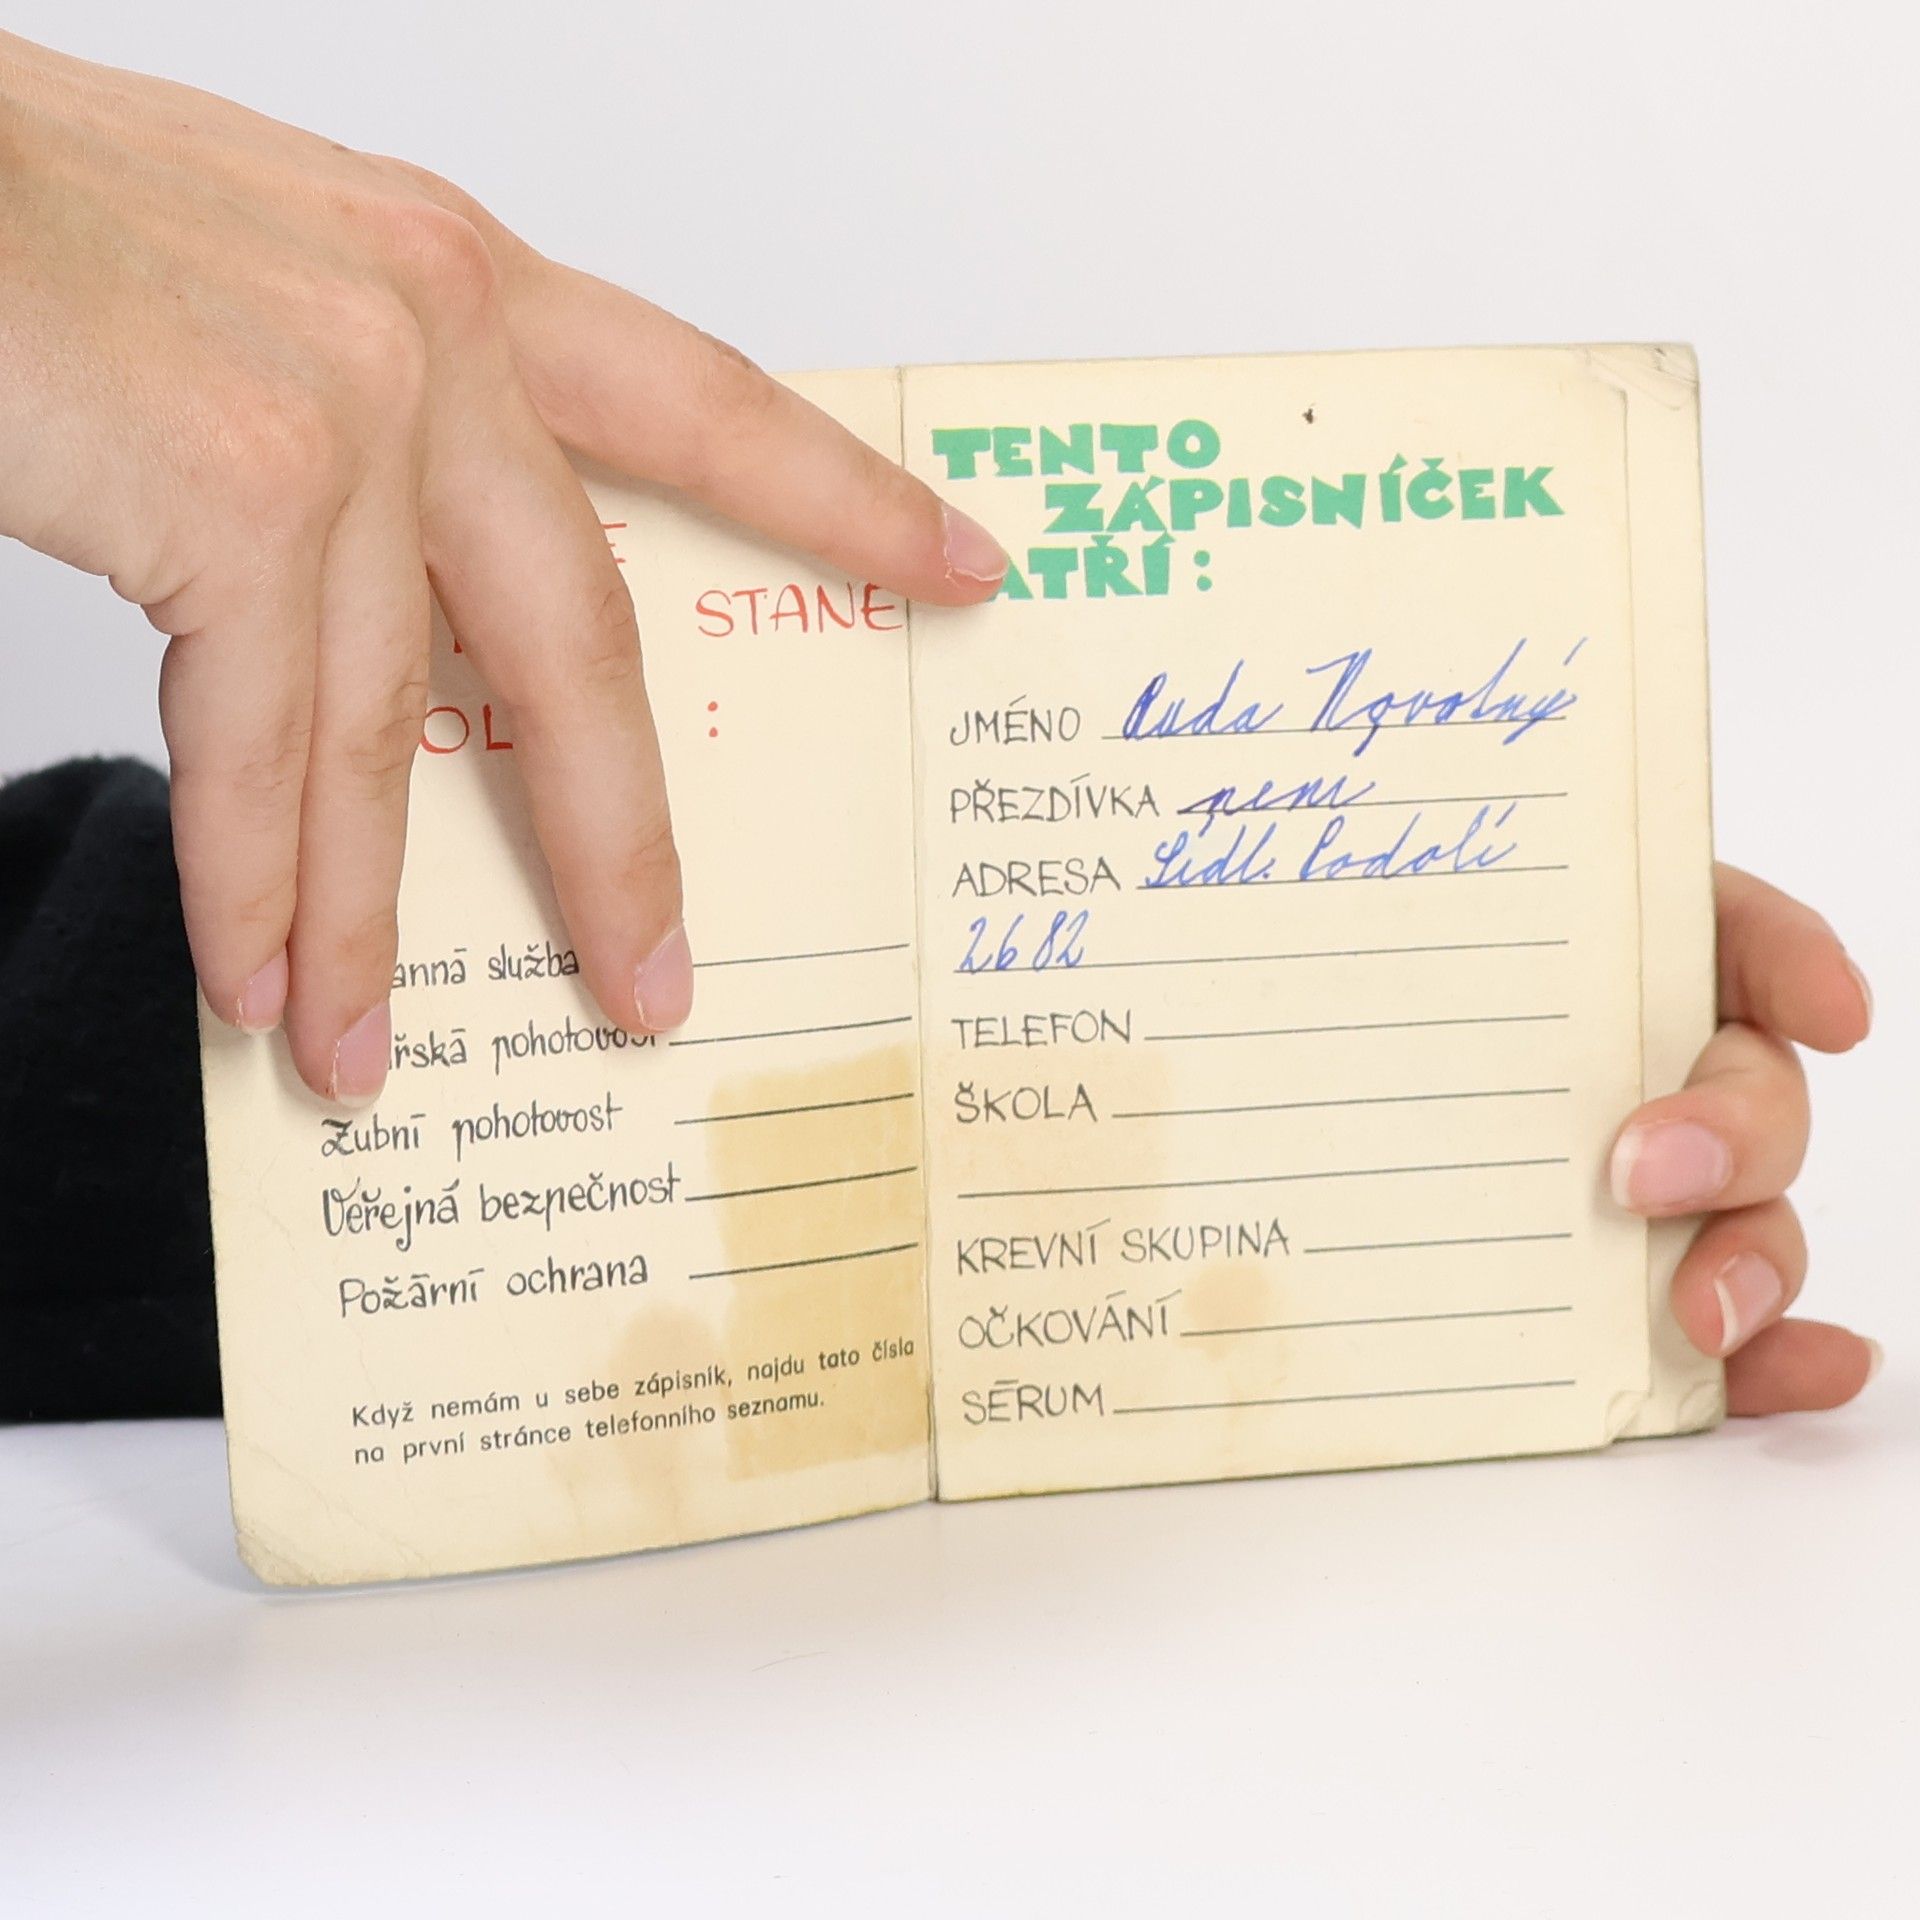 STANE
:
služba
pohotovost
Zubní pohotovost
Veřejná bezpečnost
Požární ochrana
Když nemám u sebe zápisník, najdu tato čísla
na první stránce telefonního seznamu.
TENTO
ZÁPISNÍČEK
ATŘÍ:
JMÉNO Ruda Novotný
PŘEZDÍVKA není
ADRESA Sídl. Podolí
2682
TELEFON
ŠKOLA
KREVNÍ SKUPINA
OČKOVÁNÍ
SÉRUM